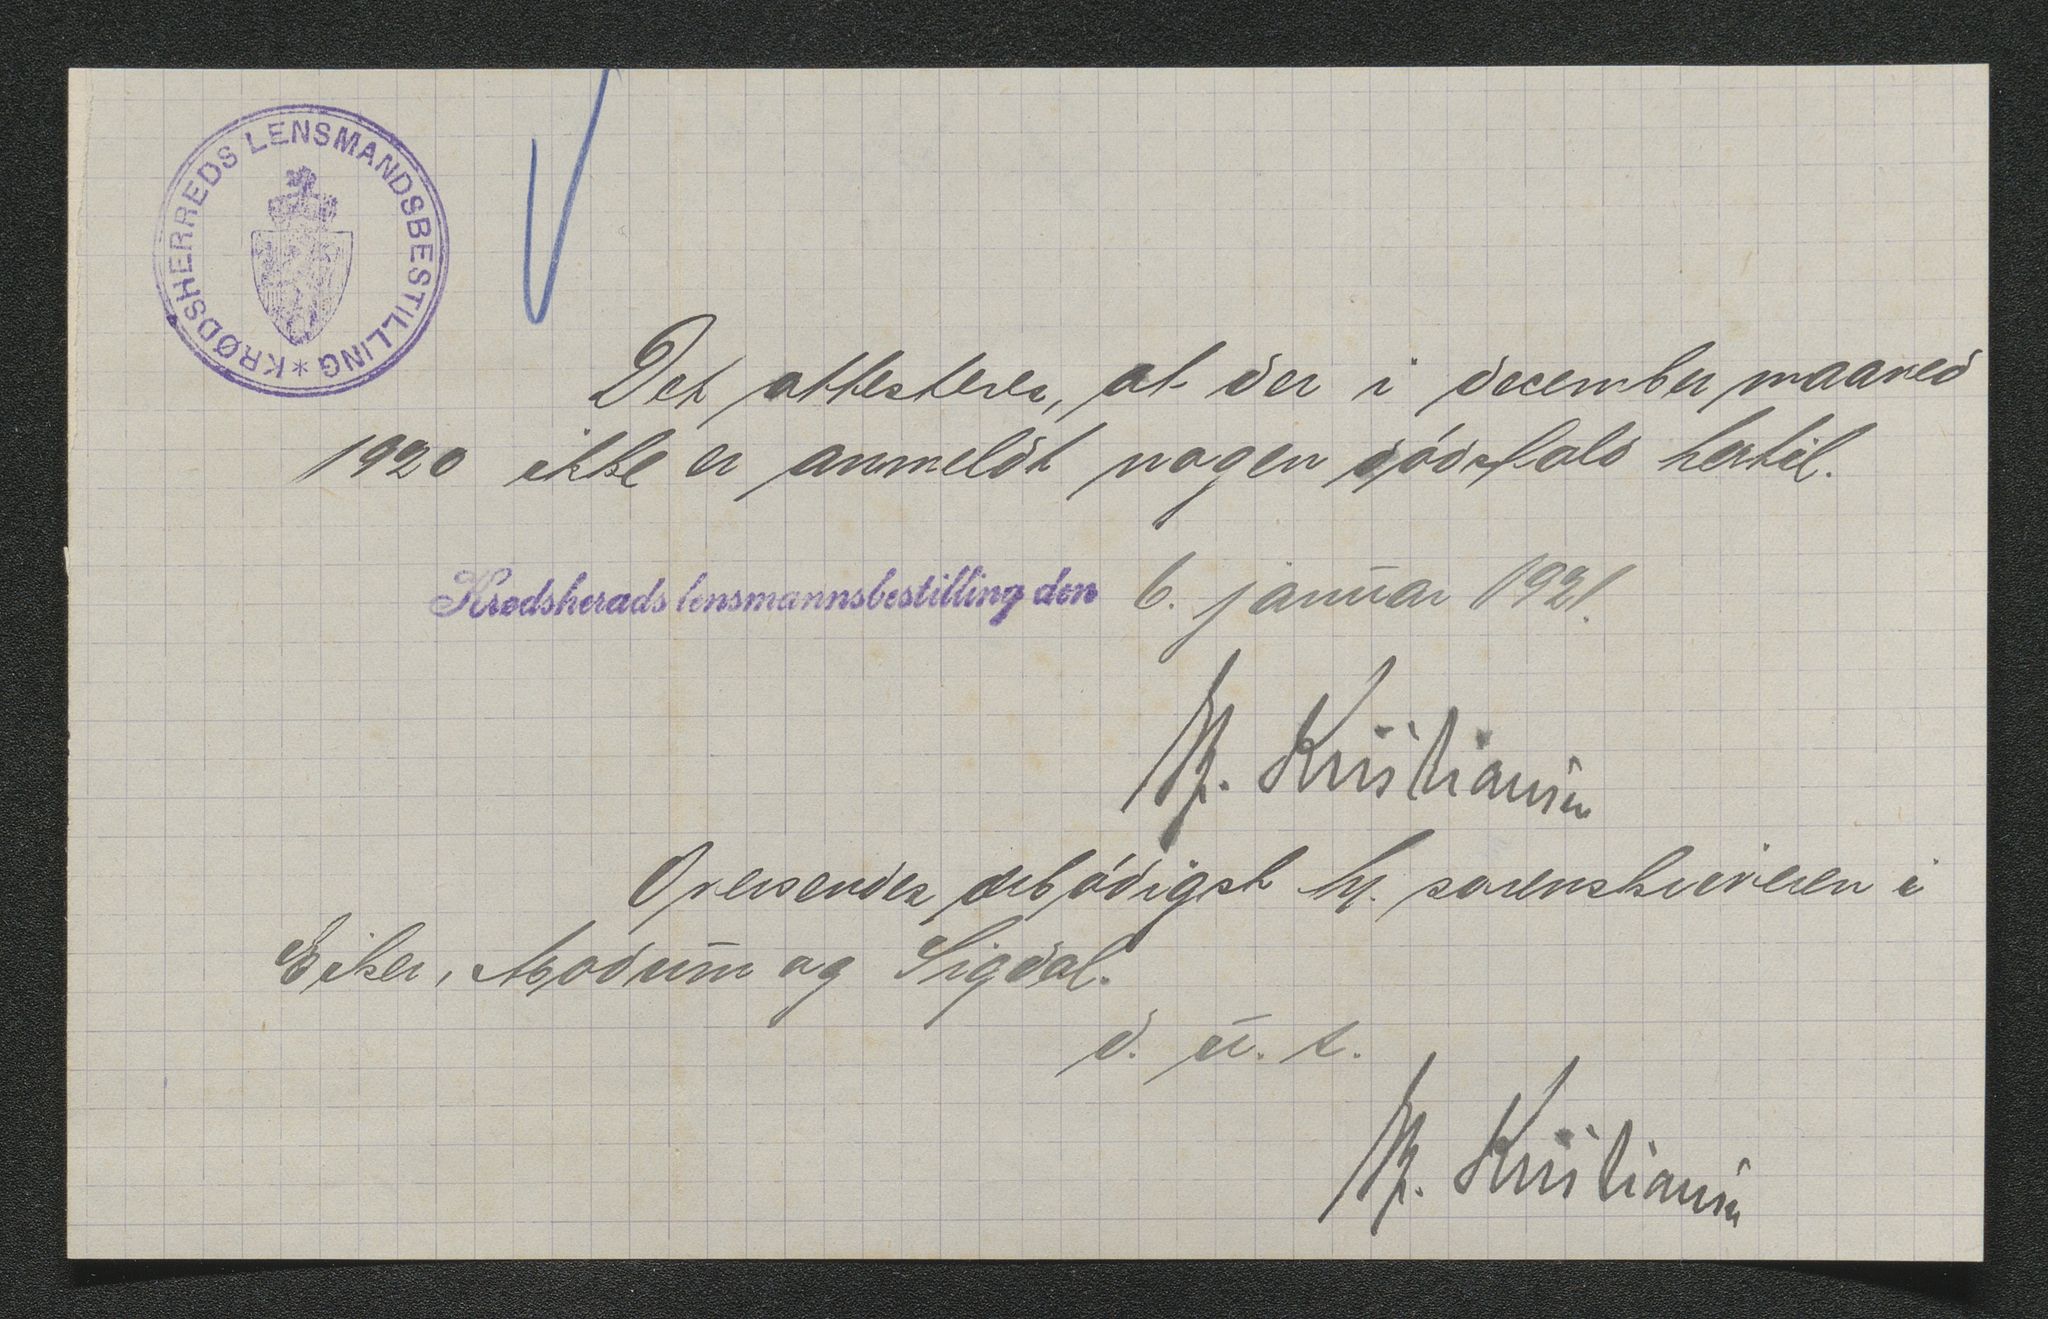 KRØDSHERREDS LENSMANDSBESTILLING *
Det attesteres, at der i december maaned
1920 ikke er anmeldt nogen dödsfald hertil.
Krødsherads lensmannsbestilling den 6. januar 1921.
Kristiansen
Oversendes ærbödigst hr. sorenskriveren i
Eiker, Modum og Sigdal.
d. u. s.
Kristiansen